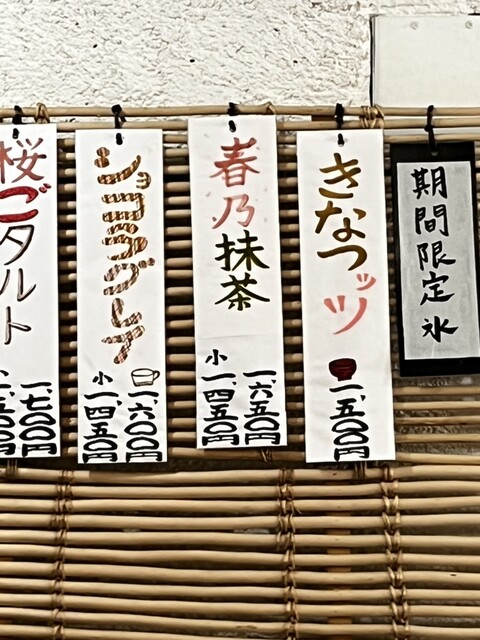 期間限定氷
きなつッツ
一、五〇〇円
春乃抹茶
一、六五〇円
小 一、四五〇円
ショコラグレイ
一、六〇〇円
小 一、四五〇円
桜ごタルト
一、七〇〇円
五〇〇円